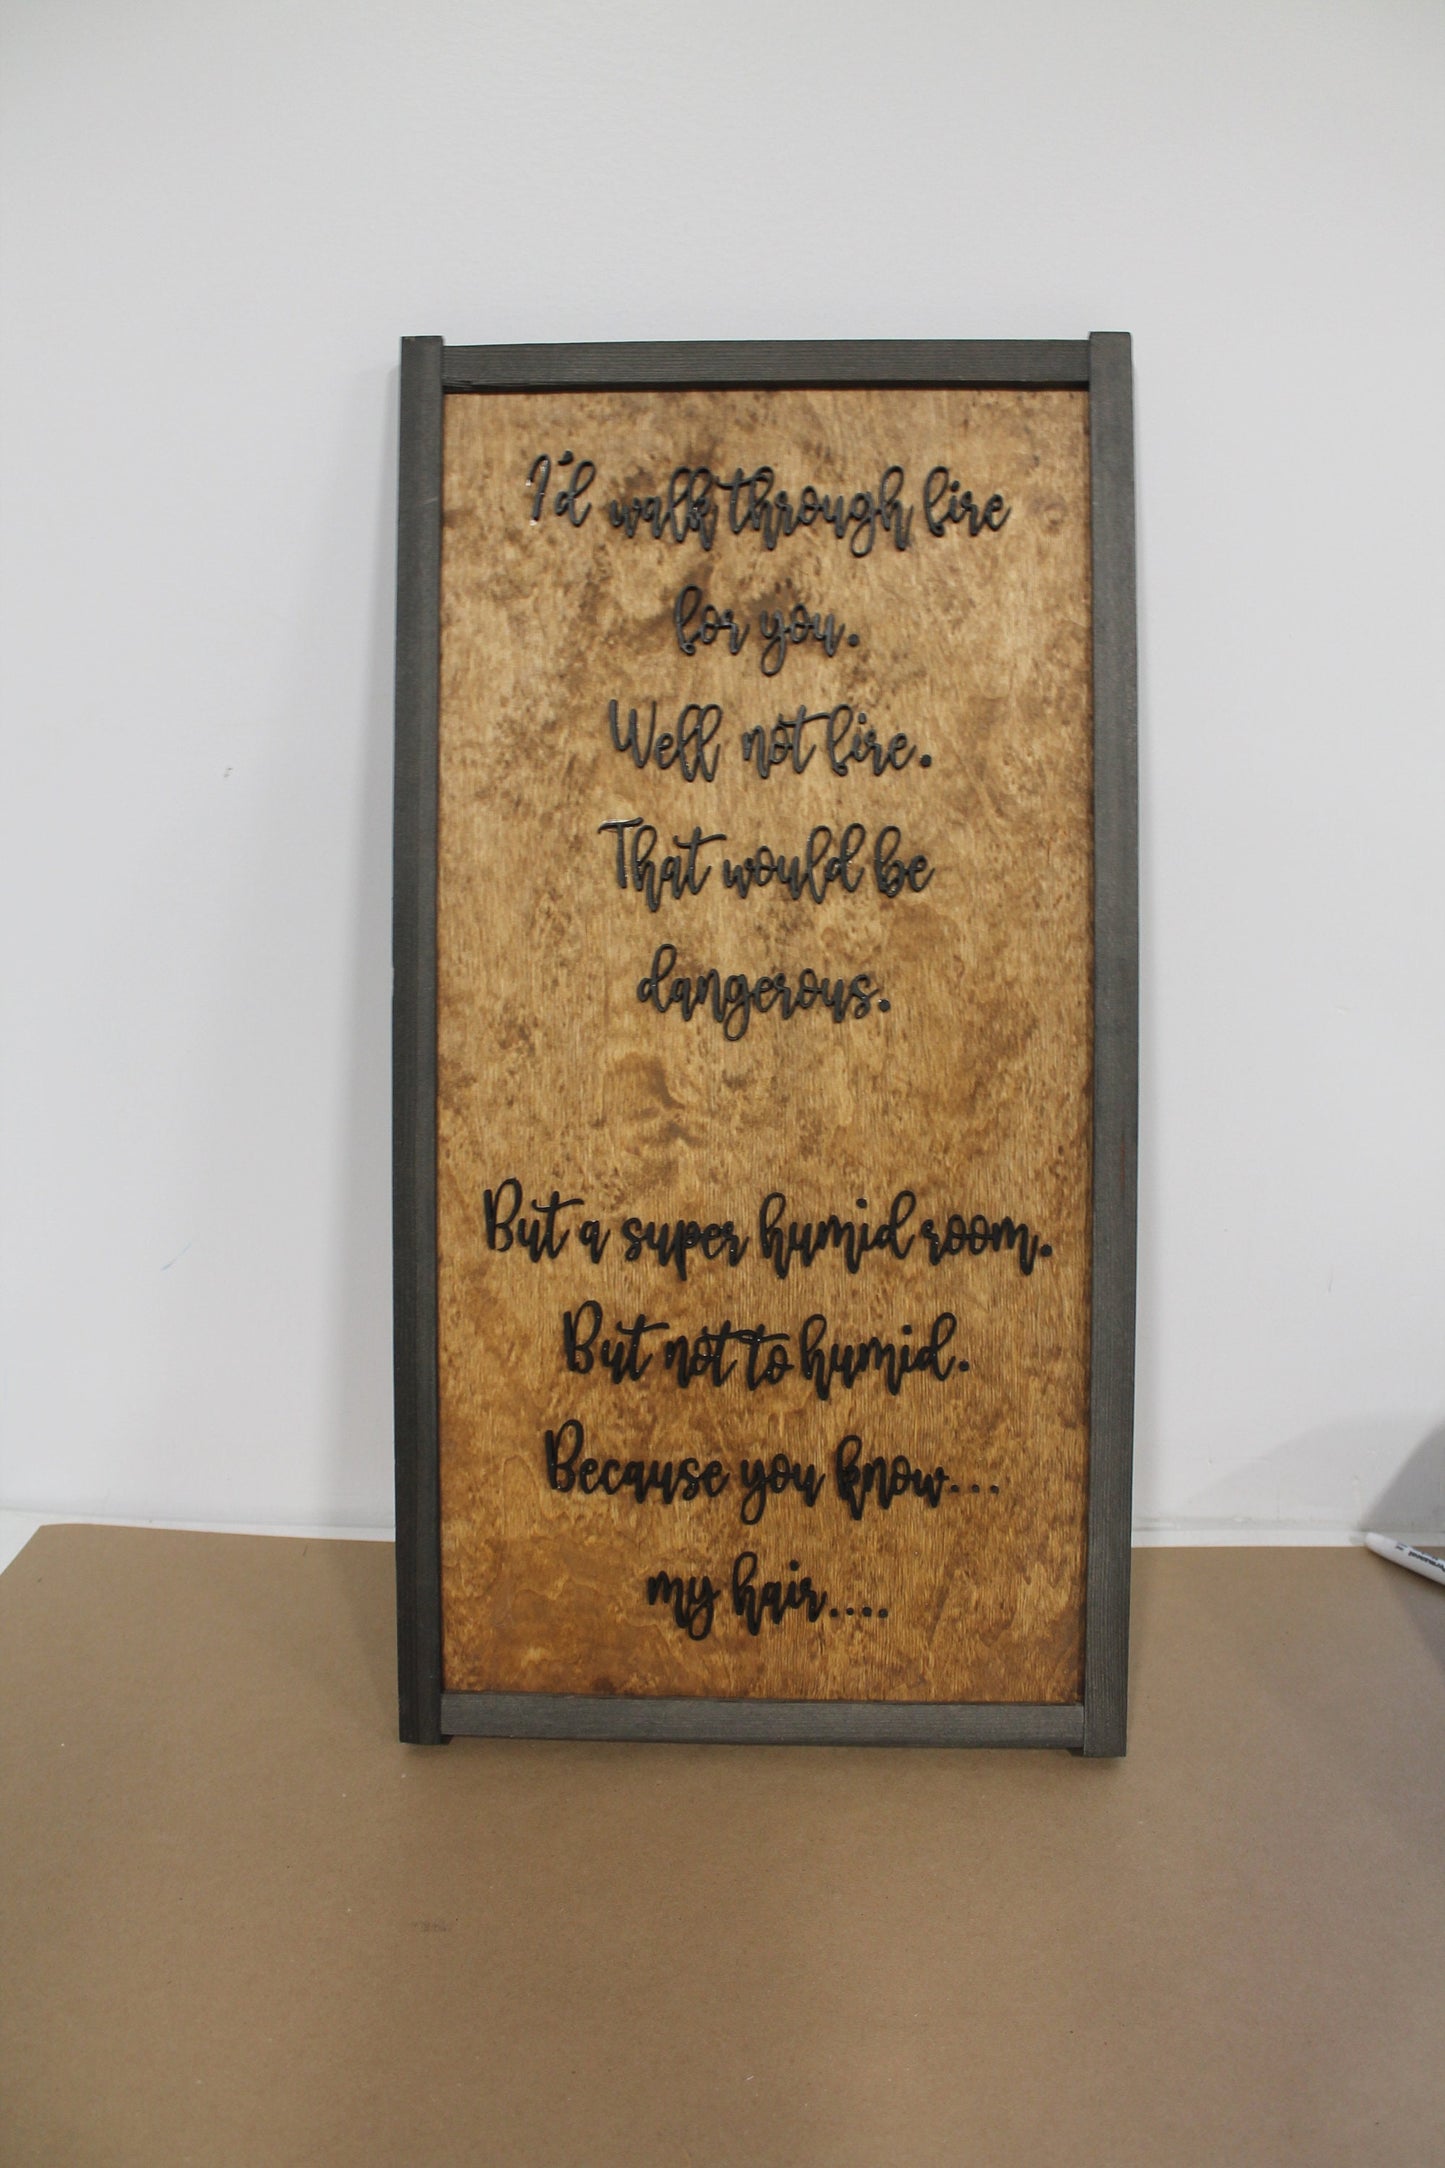 I'd walk through fire
for you.
Well not fire.
That would be
dangerous.
But a super humid room.
But not to humid.
Because you know...
my hair....